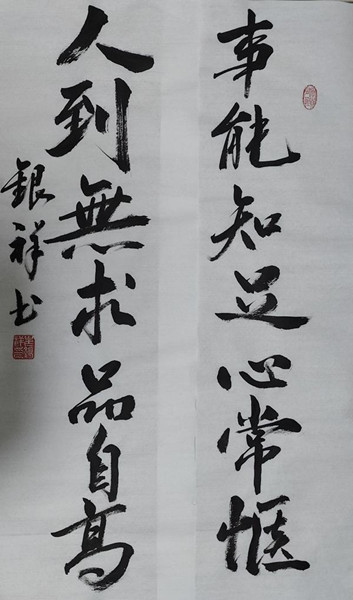 事能知足心常愜
人到無求品自高
銀祥书